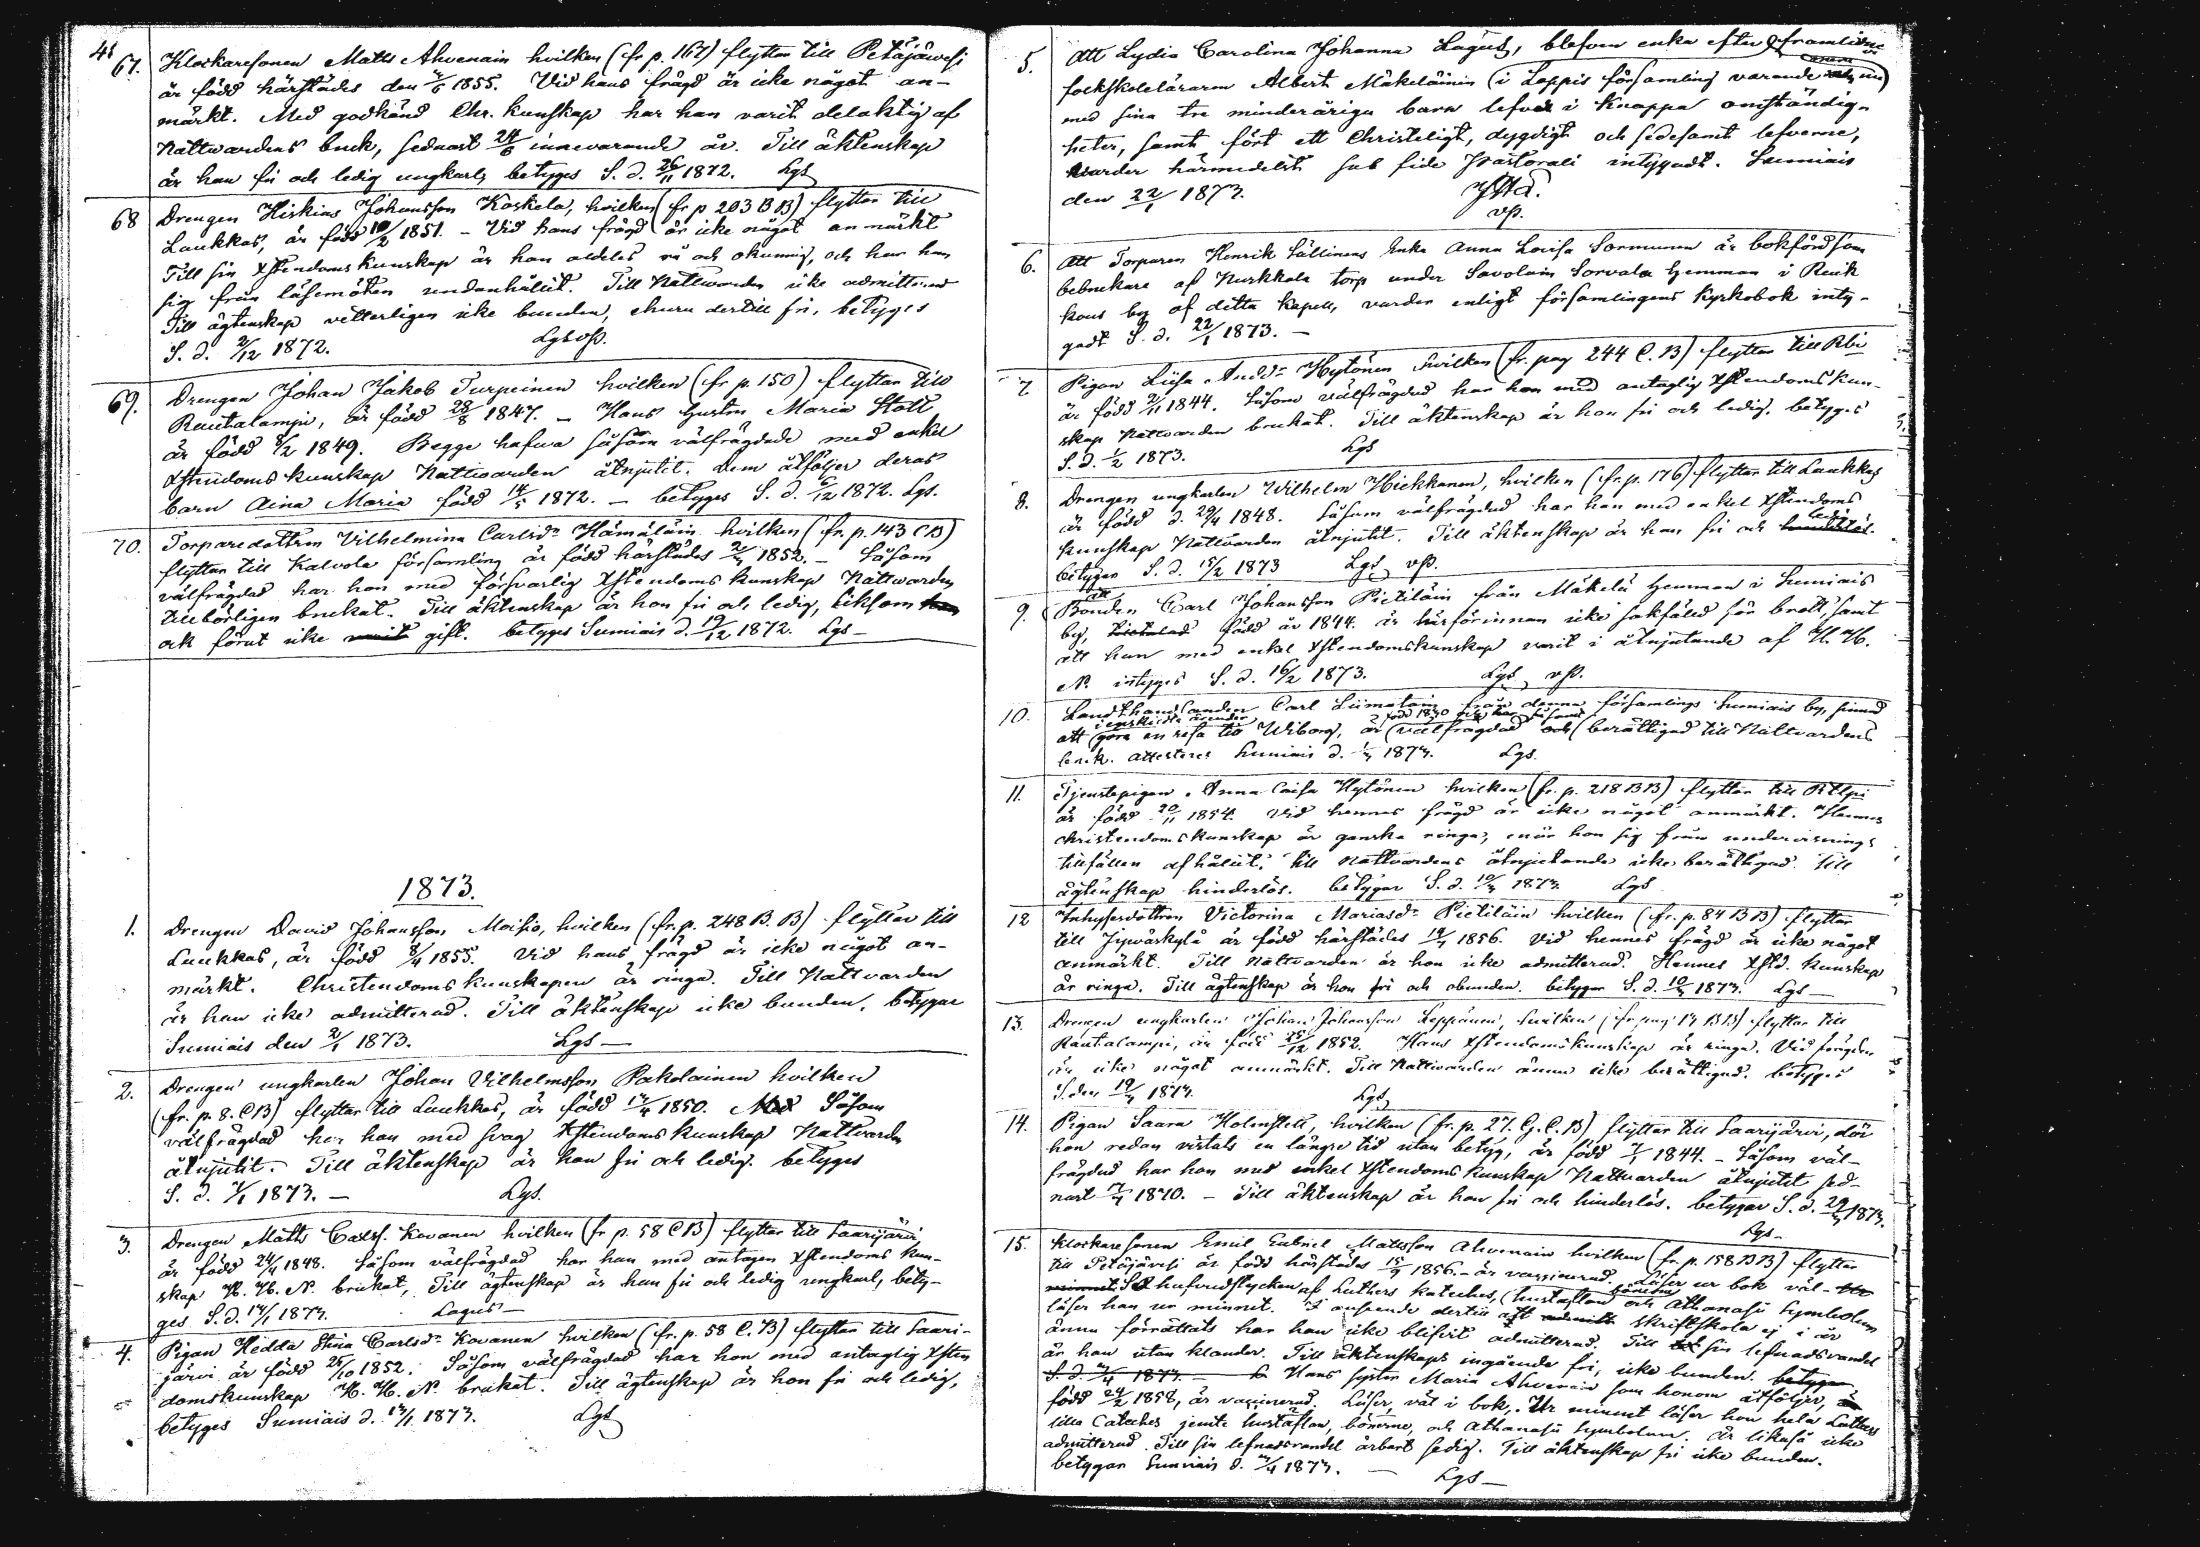 41
67. Klockaresonen Matts Ahvenain hvilken (fr p. 167) flyttar till Petäjäwesi
är född härstädes den 1855. Vid hans frägd är icke något an-
märkt. Med godkänd Chr. kunskap har han varit delaktig af
Nattwardens bruk, sednast 24/6 innevarande år. Till äktenskap
är han fri och ledig ungkarl, betyges S. d. 26/11 1872. Lgs
68 Drengen Hiskias Johansson Koskela, hvilken (fr p 203 B B) flyttar till
Laukkas, är född 10/2 1851. - Vid hans frägd är icke något anmärkt
Till sin Xstendoms kunskap är han aldeles rå och okunnig, och har han
sig från läsemöten undanhållit. Till Nattwarden icke admitterad
Till ägtenskap vetterligen icke bunden, ehuru dertill fri, betyges
S. d. 2/12 1872. Lgs vp.
69. Drengen Johan Jakob Turpeinen hvilken (fr p. 150) flyttar till
Rautalampi, är född 28/8 1847. - Hans hustru Maria Stoll
är född 8/2 1849. Begge hafwa såsom välfrägdade med enkel
Xstendoms kunskap Nattwarden åtnjutit. Dem åtföljer deras
barn Aina Maria född 14/5 1872. - betyges S. d. 6/12 1872. Lgs.
70. Torparedottren Vilhelmina Carlsdr Hämäläin hvilken (fr. p. 143 C B)
flyttar till Kalvola församling är född härstädes 1852. - Såsom
välfrägdad har hon med försvarlig Xstendoms kunskap Nattwarden
tillbörligen brukat. Till äktenskap är hon fri och ledig, liksom
ock förut icke gift. betyges Sumiais d. 19/12 1872. Lgs -
1873.
1. Drengen David Johansson Moisio, hvilken (fr. p. 248 B. B) flyttar till
Laukkas, är född 8/4 1855. Vid hans frägd är icke något an-
märkt. Christendoms kunskapen är ringa. Till Nattvarden
är han icke admitterad. Till äktenskap icke bunden. betygar
Sumiais den 2/1 1873. Lgs -
2. Drengen ungkarlen Johan Vilhelmsson Pakolainen hvilken
(fr. p. 8. C B) flyttar till Laukkas, är född 1850. Såsom
välfrägdad har han med svag Xstendoms kunskap Nattvarden
åtnjutit. - Till äktenskap är han fri och ledig. betyges
S. d. 1873. - Lgs.
3. Drengen Matts Carlss. Kovanen hvilken (fr p. 58 C B) flyttar till Saarijärvi,
är född 24/4 1848. Såsom välfrägdad har han med antagen Xstendoms kun-
skap H. H. N. brukat, Till ägtenskap är han fri och ledig ungkarl, bety-
ges S. d. 14/1 1873. Lagus -
4. Pigan Hedda Stina Carlsdr Kovanen hvilken (fr. p. 58 C. B) flyttar till Saari-
järvi är född 25/10 1852. Såsom välfrägdad har hon med antaglig Xsten
domskunskap H. H. N. brukat. Till ägtenskap är hon fri och ledig,
betyges Sumiais d. 1873. Lgs
5. Att Lydia Carolina Johanna Lagus, blefven enka efter framlidne
folkskoleläraren Albert Mäkeläinen (i Loppis församling varande
med sina tre minderåriga barn lefver i knappa omständig-
heter, samt fört ett Christeligt, dygdigt och sedesamt lefverne,
warder härmedelst sub fide Pastorali intygadt. Sumiais
den 22/1 1873.
vp.
6. Att Torparen Henrik Lällinens Enka Anna Lovisa Sormunen är bokförd som
bebruckare af Kurkkala torp under Savolain Sorvala hemman i Rauk
kous by af detta kapell, varder enligt församlingens kyrkobok inty-
gadt S. d. 22/1 1873. -
7 Pigan Liisa Andrdr Hytönen hvilken (fr. pag 244 C. B) flyttar till Rbi
är född 2/11 1844. Såsom välfrägdad har hon med antaglig Xstendoms kun-
skap Nattvarden brukat. Till äktenskap är hon fri och ledig. betyges
S. d. 1/2 1873. Lgs
8. Drengen ungkarlen Wilhelm Hiekkanen, hvilken (fr. p. 176) flyttar till Laukkas
är född d. 29/4 1848. Såsom välfrägdad har han med enkel Xstendoms
kunskap Nattvarden åtnjutit. Till äktenskap är han fri och ledig
betygar S. d. 15/2 1873 Lgs vp.
9. Att Bonden Carl Johansson Pietiläin från Mäkelä hemman i Sumiais
by, född år 1844. är härförinnan icke sakfälld för brott, samt
att han med enkel Xstendomskunskap varit i åtnjutande af H. H.
N. intyges S. d. 16/2 1873. Lgs vp.
10. Landthandlanden Carl Liimatain från denna församlings Sumiais by, sinnad
att i enskildta ärender göra en resa till Wiborg, är född 1830 välfrägdad och berättigad till Nattvardens
bruk. attesteras Sumiais d. 1873. Lgs.
11. Tjenstepigan Anna Caisa Hytönen hvilken (fr. p. 218 B B) flyttar till Rtlpi
är född 20/11 1854. Vid hennes frägd är icke något anmärkt. Hennes
christendomskunskap är ganska ringa, enär hon sig från undervisnings
tillfällen afhållit, till Nattvardens åtnjutande icke berättigad. Till
ägtenskap hinderlös. betygar S. d. 1873. Lgs
12 Inhysesdottren Victorina Mariasdr Pietiläin hvilken (fr. p. 84 B B) flyttar
till Jyväskylä är född härstädes 1856. Vid hennes frägd är icke något
anmärkt. Till Nattvarden är hon icke admitterad. Hennes Xstd. kunskap
är ringa. Till ägtenskap är hon fri och obunden. betygar S. d. 1873. Lgs -
13. Drengen ungkarlen Johan Johansson Leppänen, hvilken (fr pag 17 B B) flyttar till
Rautalampi, är född 25/12 1852. Hans Xstendomskunskap är ringa. Vid frägden
är icke något anmärkt. Till Nattvarden ännu icke berättigad. betyges
S. den 1873. Lgs
14. Pigan Saara Holmstedt, hvilken (fr. p. 27. G. C. B) flyttar till Saarijärvi, där
hon redan vistats en längre tid utan betyg, är född 1844. - Såsom väl-
frägdad har hon med enkel Xstendoms kunskap Nattvarden åtnjutit sed-
nast 1870. - Till äktenskap är hon fri och hinderlös. betygar S. d. 1873.
Lgs -
15. Klockaresonen Emil Gabriel Mattsson Ahvenain hvilken (fr. p. 158 B B) flyttar
till Petäjävesi är född härstädes 1856. - är vaccinerad. Läser ur bok väl -
hufvudstycken af Luthers kateches, hustaflan bönerna och Athanasii Symbolum
läser han ur minnet. I anseende dertill att skriftskola ej i år
ännu förrättats har han icke blifvit admitterad. Till sin lefnadsvandel
är han utan klander. Till äktenskaps ingående fri, icke bunden. betygar
S. d. 1873. - Hans syster Maria Ahvenain som honom åtföljer,
född 24/2 1858, är vaccinerad. Läser väl i bok. Ur minnet läser hon hela Luthers
lilla Cateches jemte hustaflan, bönerne, och Athanasii Symbolum. Är likaså icke
admitterad. Till sin lefnadsvandel ärbart sedig. Till äktenskap fri icke bunden.
betygar Sumiais d. 1873. - Lgs -